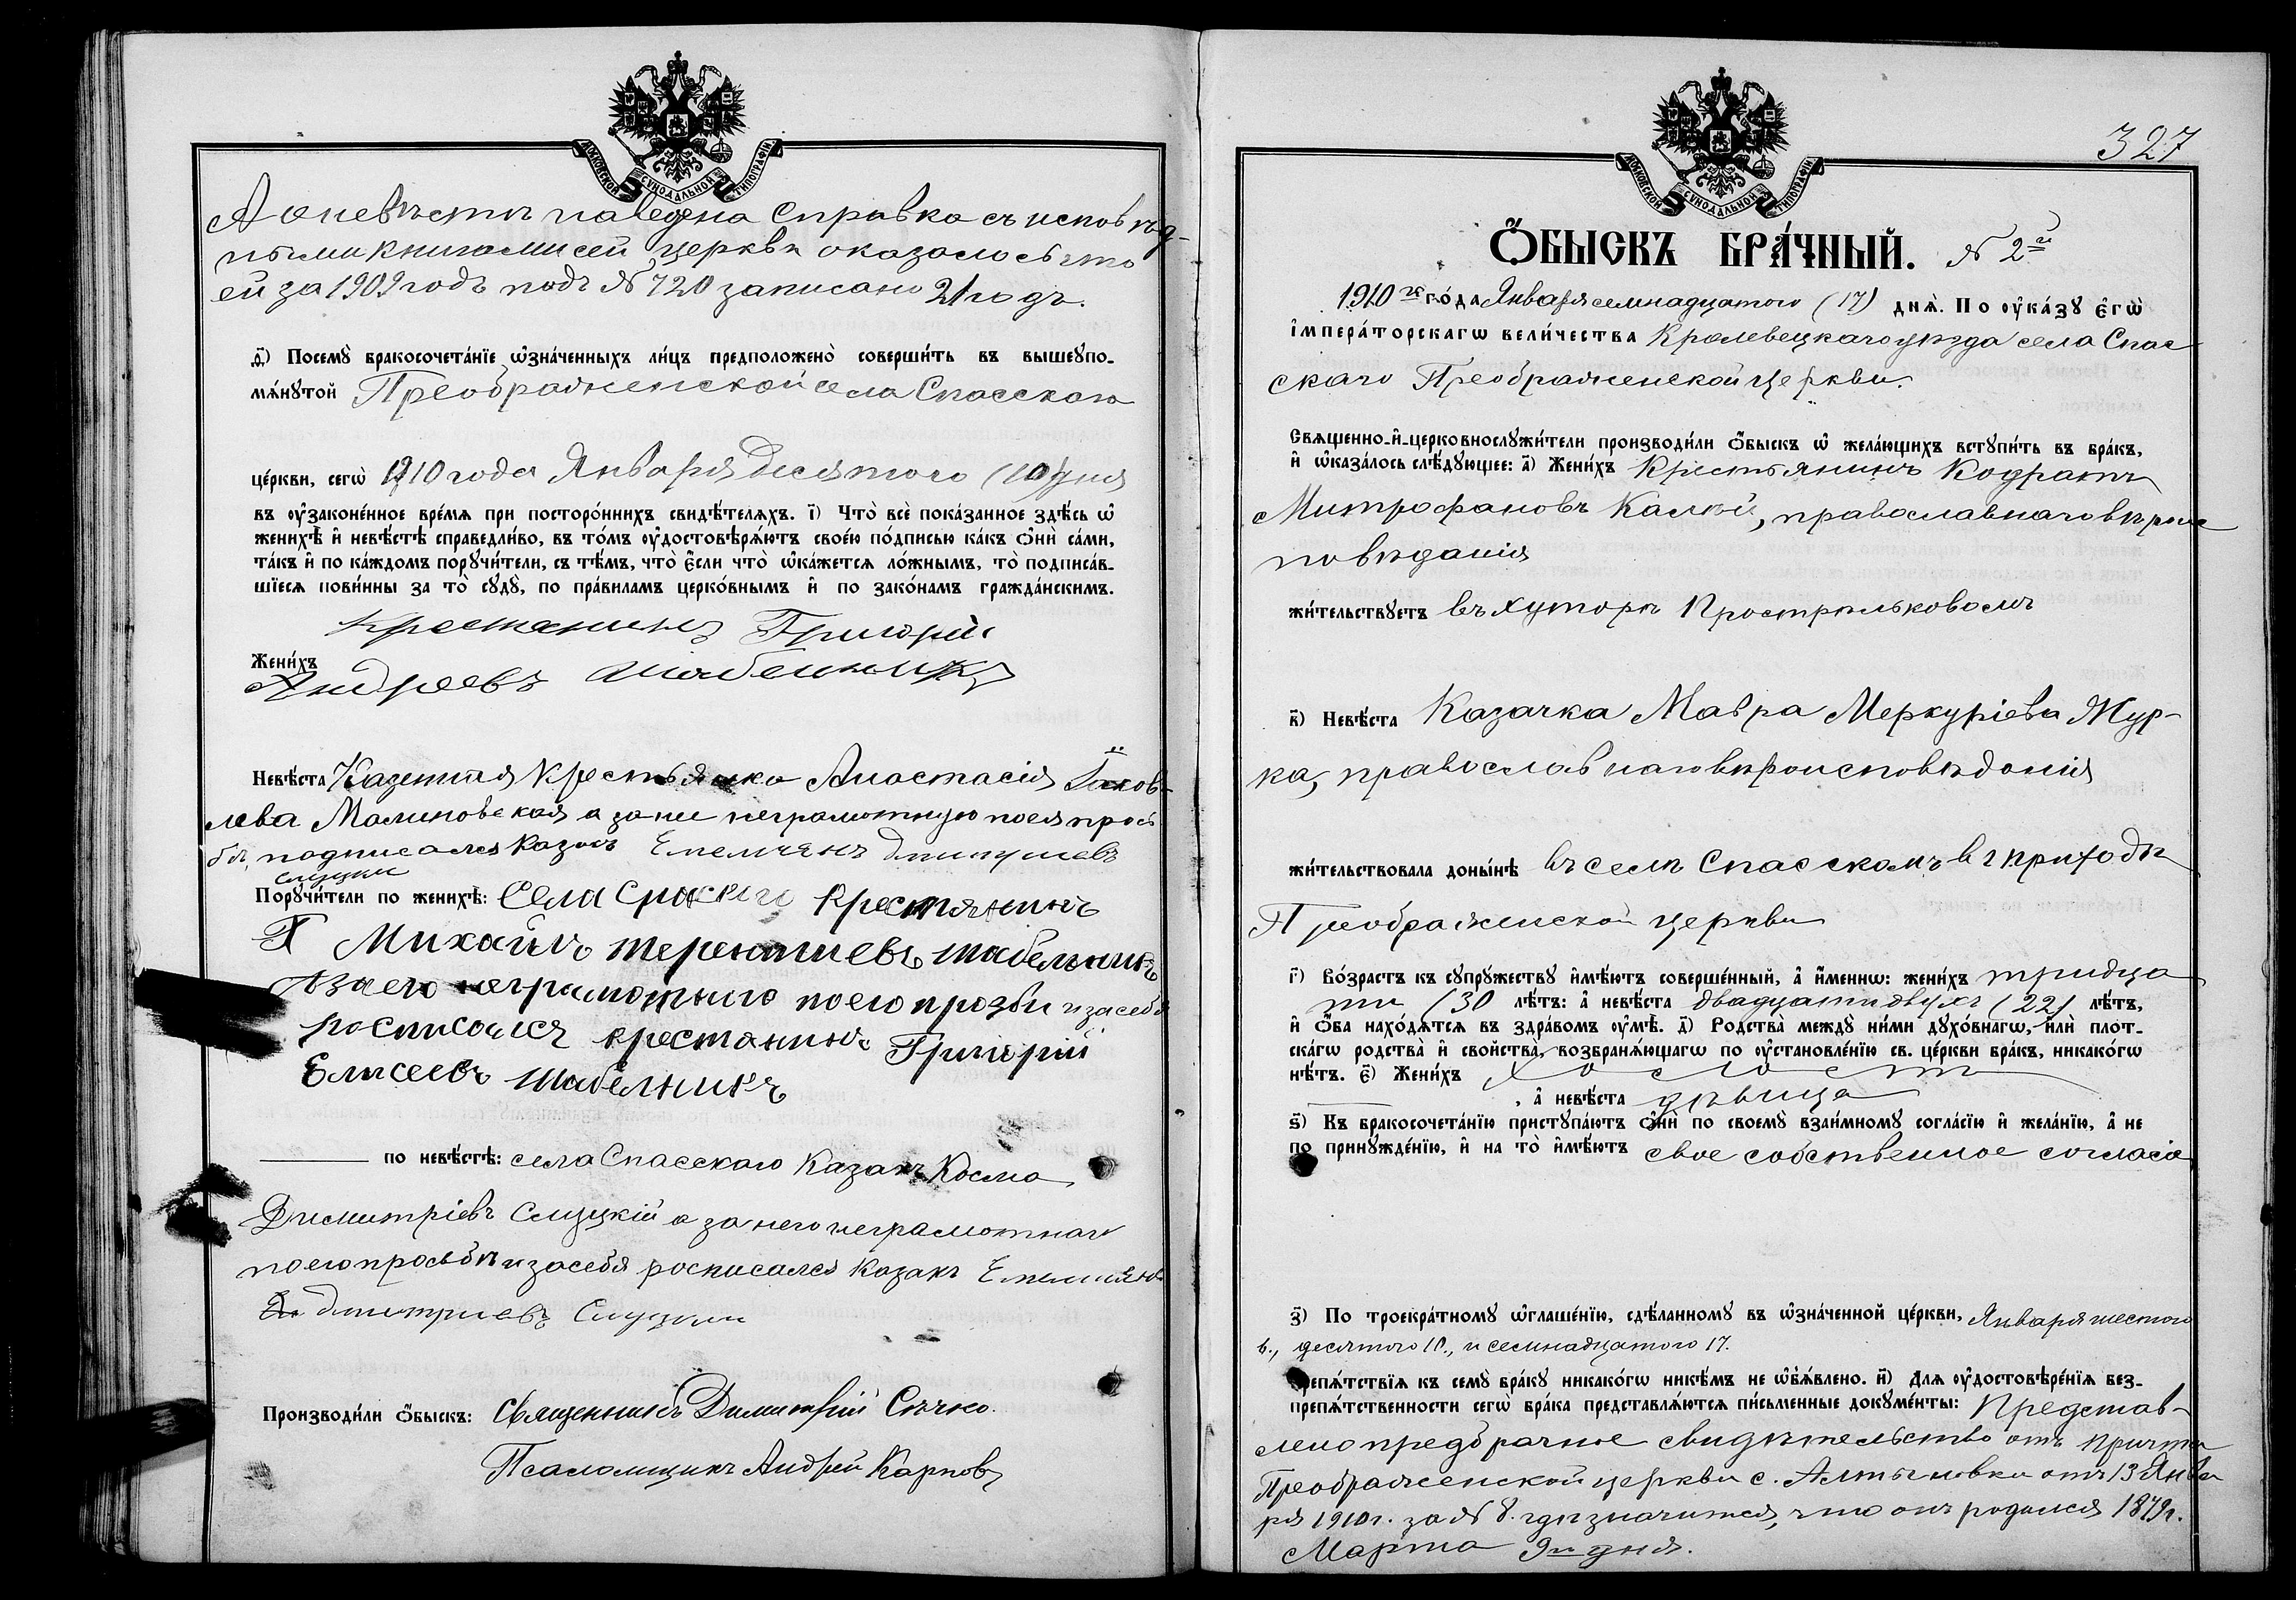 МОСКОВСКОЙ СѴНОДАЛЬНОЙ ТИПОГРАФІИ
А о невѣстѣ наведена справка съ исповѣд-
ными книгами сей церкви оказалось что
ей за 1909 годъ подъ № 720 записано 21 годъ.
д҃і) Посемꙋ̀ бракосочета́нїе ѡ҆зна́ченныхъ ли́цъ предположено̀ соверши́ть въ вышеꙋпо-
мѧ́нꙋтой Преображенской села Спасскаго
це́ркви, сегѡ̀ 1910 года Января десятого (10) дня
въ ᲂу҆законе́нное вре́мѧ при посторо́ннихъ свидѣ́телѧхъ. і҃) Что̀ всѐ пока́занное здѣ́сь ѡ҆
женихѣ̀ и҆ невѣ́стѣ справедли́во, въ то́мъ ᲂу҆достовѣрѧ́ютъ свое́ю по́дписью ка́къ ѻ҆нѝ са́ми,
та́къ и҆ по ка́ждомъ порꙋчи́тели, съ тѣ́мъ, что̀ є҆́сли что̀ ѡ҆ка́жетсѧ ло́жнымъ, то̀ подписа́в-
шїесѧ пови́нны за то̀ сꙋдꙋ̀, по пра́виламъ церко́внымъ и҆ по зако́намъ гражда́нскимъ.
Крестянинъ Григорій
Жени́хъ
Андреевъ Шабельникъ
Невѣ́ста Казенная Крестьянка Анастасія Іаков-
лева Малиновская а за ни неграмотную по ея прось
бѣ, подписался Казакъ Емельянъ
Слуцки
Порꙋчи́тели по женихѣ̀: Села Спаскаго крестянинъ
Михаилъ Терентиевъ Шабельникъ
А за его неграмотнаго по его прозби и за себя
росписался крестанинъ Григорій
Елисеевъ Шабелникъ
по невѣ́стѣ: села Спасскаго Казакъ Косма
Димитріевъ Слуцкій а за него неграмотнаго
по его просьбѣ и за себя росписался Казакъ Емельянъ
Дмитриевъ Слуцкии
Производи́ли ѻ҆́быскъ: Священникъ Димитрій Сѣчко.
Псаломщикъ Андрей Карповъ
327
МОСКОВСКОЙ СѴНОДАЛЬНОЙ ТИПОГРАФІИ
Ѻ҆́БЫСКЪ БРА́ЧНЫЙ. № 2й
1910 го го́да Января семнадцатого (17) днѧ̀. По ᲂу҆ка́зꙋ є҆гѡ̀
і҆мпера́торскагѡ вели́чества Кролевецкаго уѣзда села Спас-
скаго Преображенской церкви.
Свѧщенно-и҆-церковнослꙋжи́тели производи́ли ѻ҆́быскъ ѡ҆ жела́ющихъ встꙋпи́ть въ бра́къ,
и҆ ѡ҆каза́лось слѣ́дꙋющее: а҃) Жени́хъ Крестьянинъ Кодратъ
Митрофановъ Калюй, православнаго вѣроис
повѣданія
жи́тельствꙋетъ въ хуторѣ Прострѣльковомъ
в҃) Невѣ́ста Казачка Мавра Меркуріева Жур-
ка, православнаго вѣроисповѣданія
жи́тельствовала доны́нѣ въ селѣ Спасскомъ в приходѣ
Преображенской церкви
г҃) Во́зрастъ къ сꙋпрꙋ́жествꙋ и҆мѣ́ютъ соверше́нный, а҆ и҆́менно: жени́хъ тридца
ти (30 лѣ́тъ: а҆ невѣ́ста двадцати двухъ (22) лѣ́тъ,
и҆ ѻ҆́ба нахо́дѧтсѧ въ здра́вомъ ᲂу҆мѣ̀. д҃) Родства̀ междꙋ̀ ни́ми дꙋхо́внагѡ, и҆лѝ пло́т-
скагѡ родства̀ и҆ свойства̀, возбранѧ́ющагѡ по ᲂу҆становле́нїю св. це́ркви бра́къ, никако́гѡ
нѣ́тъ. є҃) Жени́хъ холостъ
, а҆ невѣ́ста дѣвица
ѕ҃) Къ бракосочета́нїю пристꙋпа́ютъ ѻ҆нѝ по своемꙋ̀ взаи́мномꙋ согла́сїю и҆ жела́нїю, а҆ не
по принꙋжде́нїю, и҆ на то̀ и҆мѣ́ютъ свое собственное согласіе
з҃) По троекра́тномꙋ ѡ҆глаше́нїю, сдѣ́ланномꙋ въ ѡ҆зна́ченной це́ркви, Января шестого
6., десятого 10., и семнадцатого 17.
препѧ́тствїѧ къ семꙋ̀ бра́кꙋ никако́гѡ никѣ́мъ не ѡ҆б̾ѧ́влено. и҃) Длѧ ᲂу҆достовѣре́нїѧ без-
препѧ́тственности сегѡ̀ бра́ка представлѧ́ютсѧ пи́сьменные докꙋме́нты: Представ-
лено предбрачное свидѣтельство отъ причта
Преображенской церкви с. Алтыновки отъ 13 Янва
ря 1910 г. за № 8. гдѣ значится, что онъ родился 1879 г.
Марта 9го дня.